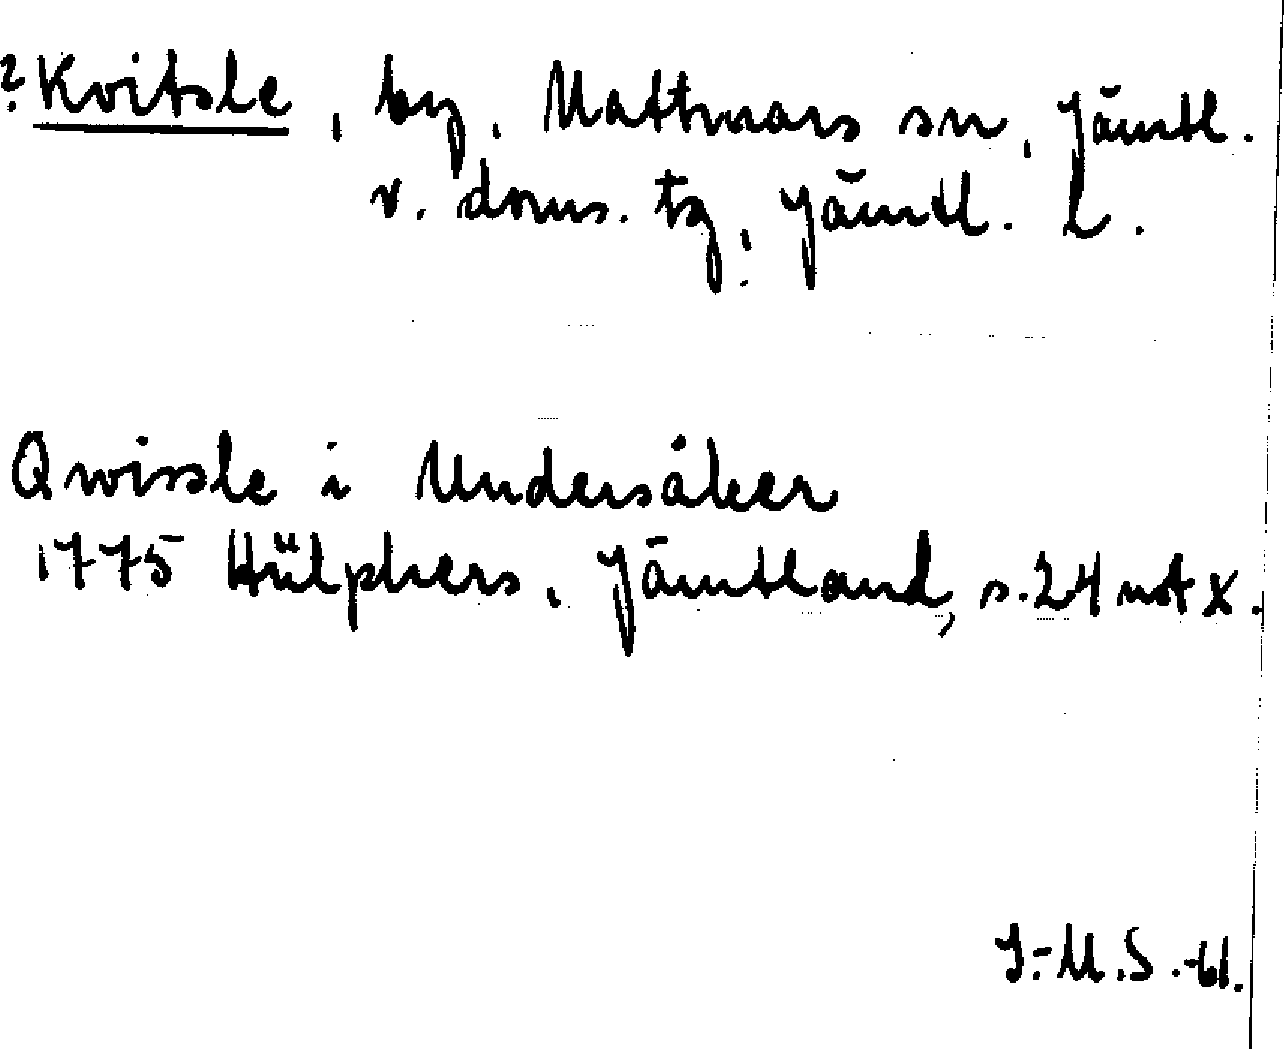 ? Kvitsle, by, Mattmars sn, Jämtl.
v. doms. tg, Jämtl. L.
Qwissle i Undersåker
1775 Hülphers, Jämtland, s. 24 not x.
I.-M.S.-61.